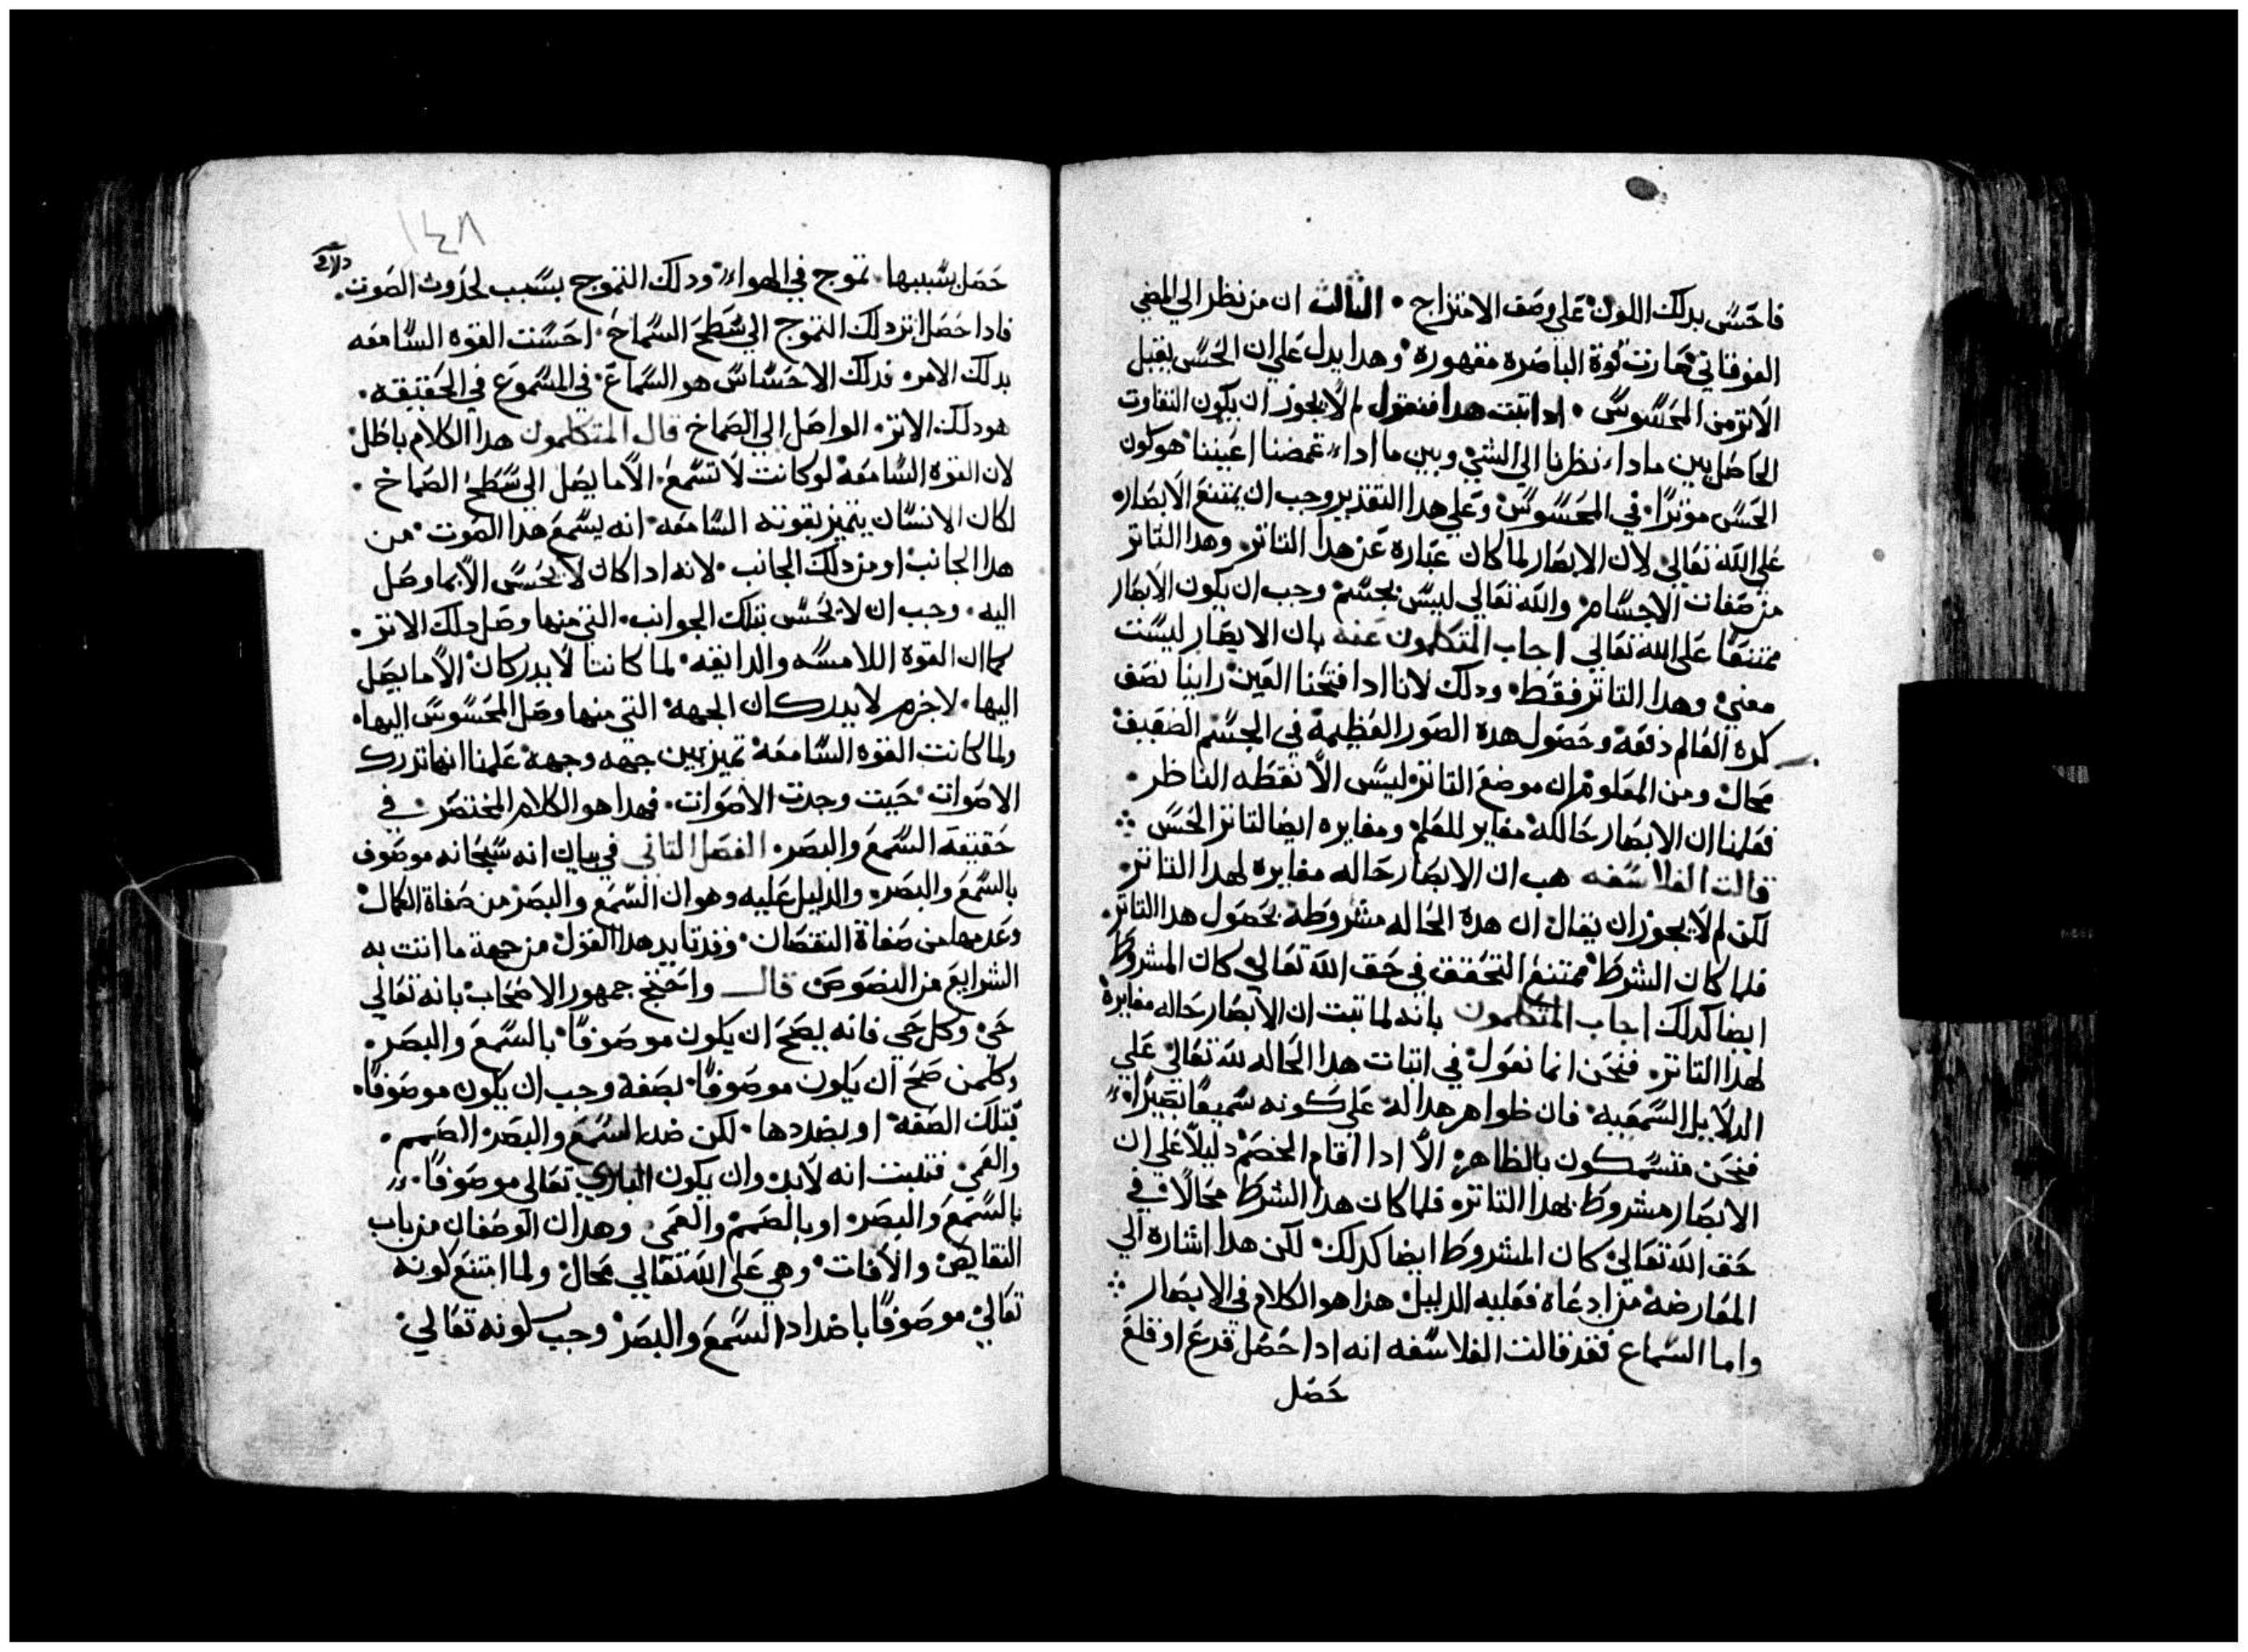 فاحسّ بدلك اللون على وصف الامتزاج • الثالث ان من نظر الي المضي
الفوقاني صارت قوة الباصره مقهوره وهدا يدل علي ان الحسّ يقبل
الاثر من المحسوس • ادا ثبت هدا فنقول لم لا يجوز ان يكون التفاوت
الحاصل بين ما ادا نظرنا الي الشي وبين ما ادا غمضنا اعيننا هو كون
الحسّ موثرًا في المحسوس وعلي هدا التقدير وجب ان يمتنع الابصار
علي الله تعالي لان الابصار لما كان عباره عن هدا التاثر وهدا التاثر
من صفات الاجسام والله تعالي ليس بجسم وجب ان يكون الابصار
ممتنعًا علي الله تعالي اجاب المتكلمون عنه بان الابصار ليست
معني وهدا التاثر فقط ودلك لانا ادا فتحنا العين راينا نصف
كره العالم دفعه وحصول هده الصور العظيمه في الجسم الضعيف
محال ومن المعلوم ان موضع التاثر ليس الّا نقطه الناظر •
فعلمنا ان الابصار حاله مغاير للعلم ومغايره ايضا لتاثر الحسّ
قالت الفلاسفه هب ان الابصار حاله مغايره لهدا التاثر
لكن لم لا يجوز ان يقال ان هده الحاله مشروطه بحصول هدا التاثر
فلما كان الشرط ممتنع التحقق في حق الله تعالي كان المشروط
ايضا كدلك اجاب المتكلمون بانه لما ثبت ان الابصار حاله مغايرة
لهدا التاثر فنحن انما نعول في اثبات هدا الحاله لله تعالي علي
الدلايل السمعيه فان ظواهر هدا له علي كونه سميعًا بصيرًا
فنحن متمسكون بالظاهر الّا ادا اقام الخصم دليلًا علي ان
الابصار مشروط بهدا التاثر فلما كان هدا الشرط محالًا في
حق الله تعالي كان المشروط ايضا كدلك لكن هدا اشاره الي
المعارضه من ادعاه فعليه الدليل هدا هو الكلام في الابصار
واما السماع فقد قالت الفلاسفه انه ادا حصل قرع او قلع
حصل
١٤٨
حصل بسببها تموج في الهواء ودلك التموج بسبب لحدوث الصوت
فادا حصل اثر دلك التموج الي سطح السماخ احسّت القوه السامعه
بدلك الامر فدلك الاحساس هو السماع في المسموع في الحقيقه
هو دلك الاثر الواصل الي الصماخ قال المتكلمون هدا الكلام باطل
لان القوه السامعه لو كانت لا تسمع الّا ما يصل الي سطح الصماخ
لكان الانسان يتميز بقوته السامعه انه يسمع هدا الصوت من
هدا الجانب او من دلك الجانب لانه ادا كان لا يحسّ الّا بما وصل
اليه وجب ان لا يحسّ بتلك الجوانب التي منها وصل دلك الاثر
كما ان القوة اللامسه والدايقه لما كانتا لا يدركان الّا ما يصل
اليها لا جرم لا يدركان الجهه التي منها وصل المحسوس اليها
ولما كانت القوه السامعه تميز بين جهه وجهه علمنا انها تدرك
الاصوات حيث وجدت الاصوات فهدا هو الكلام المختصر في
حقيقة السمع والبصر الفصل الثاني في بيان انه سبحانه موصوف
بالسمع والبصر والدليل عليه وهو ان السمع والبصر من صفاة الكمال
وعدمها من صفاة النقصان وقد تايد هدا القول من جهة ما اتت به
الشرايع من النصوص قال واحتج جمهور الاصحاب بانه تعالي
حي وكل حي فانه يصح ان يكون موصوفًا بالسمع والبصر
وكلمن صح ان يكون موصوفًا بصفة وجب ان يكون موصوفًا
بتلك الصفه او بضدها لكن ضد السمع والبصر الصمم
والعمي فثبت انه لابد وان يكون الباري تعالي موصوفًا
بالسمع والبصر او بالصمم والعمي وهدان الوصفان من باب
النقايص والافات وهي علي الله تعالي محال ولما امتنع كونه
تعالي موصوفًا باضداد السمع والبصر وجب كونه تعالي